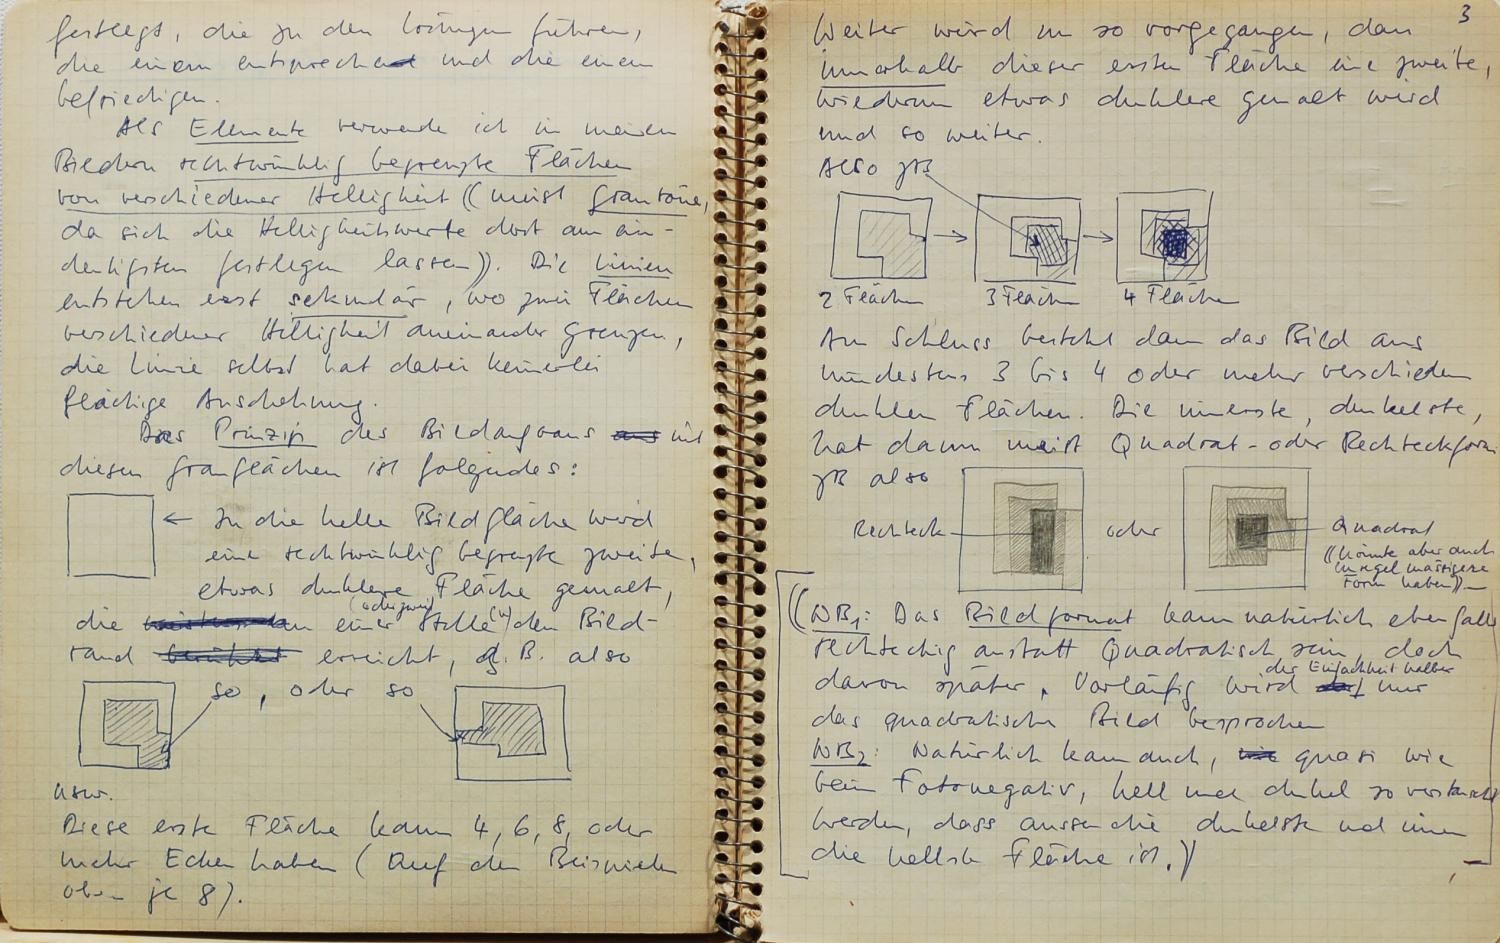 festlegt, die zu den Lösungen führen,
die einem entsprechen und die einen
befriedigen.
Als Elemente verwende ich in meinen
Bildern rechtwinklig begrenzte Flächen
von verschiedener Helligkeit ((meist Grautöne,
da sich die Helligkeitswerte dort am ein-
deutigsten festlegen lassen)). Die Linien
entstehen erst sekundär, wo zwei Flächen
verschiedener Helligkeit aneinander grenzen,
die Linie selbst hat dabei keinerlei
flächige Ausdehnung.
Das Prinzip des Bildaufbaus mit
diesen Grauflächen ist folgendes:
← In die helle Bildfläche wird
eine rechtwinklig begrenzte zweite,
etwas dunklere Fläche gemalt,
die an einer (oder zwei) Stelle(n) den Bild-
rand erreicht, z.B. also
so, oder so
usw.
Diese erste Fläche kann 4, 6, 8, oder
mehr Ecken haben (Auf den Beispielen
oben je 8).
3
Weiter wird nun so vorgegangen, dass
innerhalb dieser ersten Fläche eine zweite,
wiederum etwas dunklere gemalt wird
und so weiter.
Also zB
2 Flächen 3 Flächen 4 Flächen
Am Schluss besteht dann das Bild aus
mindestens 3 bis 4 oder mehr verschieden
dunklen Flächen. Die innerste, dunkelste,
hat dann meist Quadrat- oder Rechteckform
zB also
Rechteck oder Quadrat
((könnte aber auch
unregelmässigere
Form haben))
((NB1: Das Bildformat kann natürlich ebenfalls
rechteckig anstatt Quadratisch sein, doch
davon später. Vorläufig wird der Einfachheit halber nur
das quadratische Bild besprochen
NB2: Natürlich kann auch, quasi wie
beim Fotonegativ, hell und dunkel so vertauscht
werden, dass aussen die dunkelste und innen
die hellste Fläche ist.))